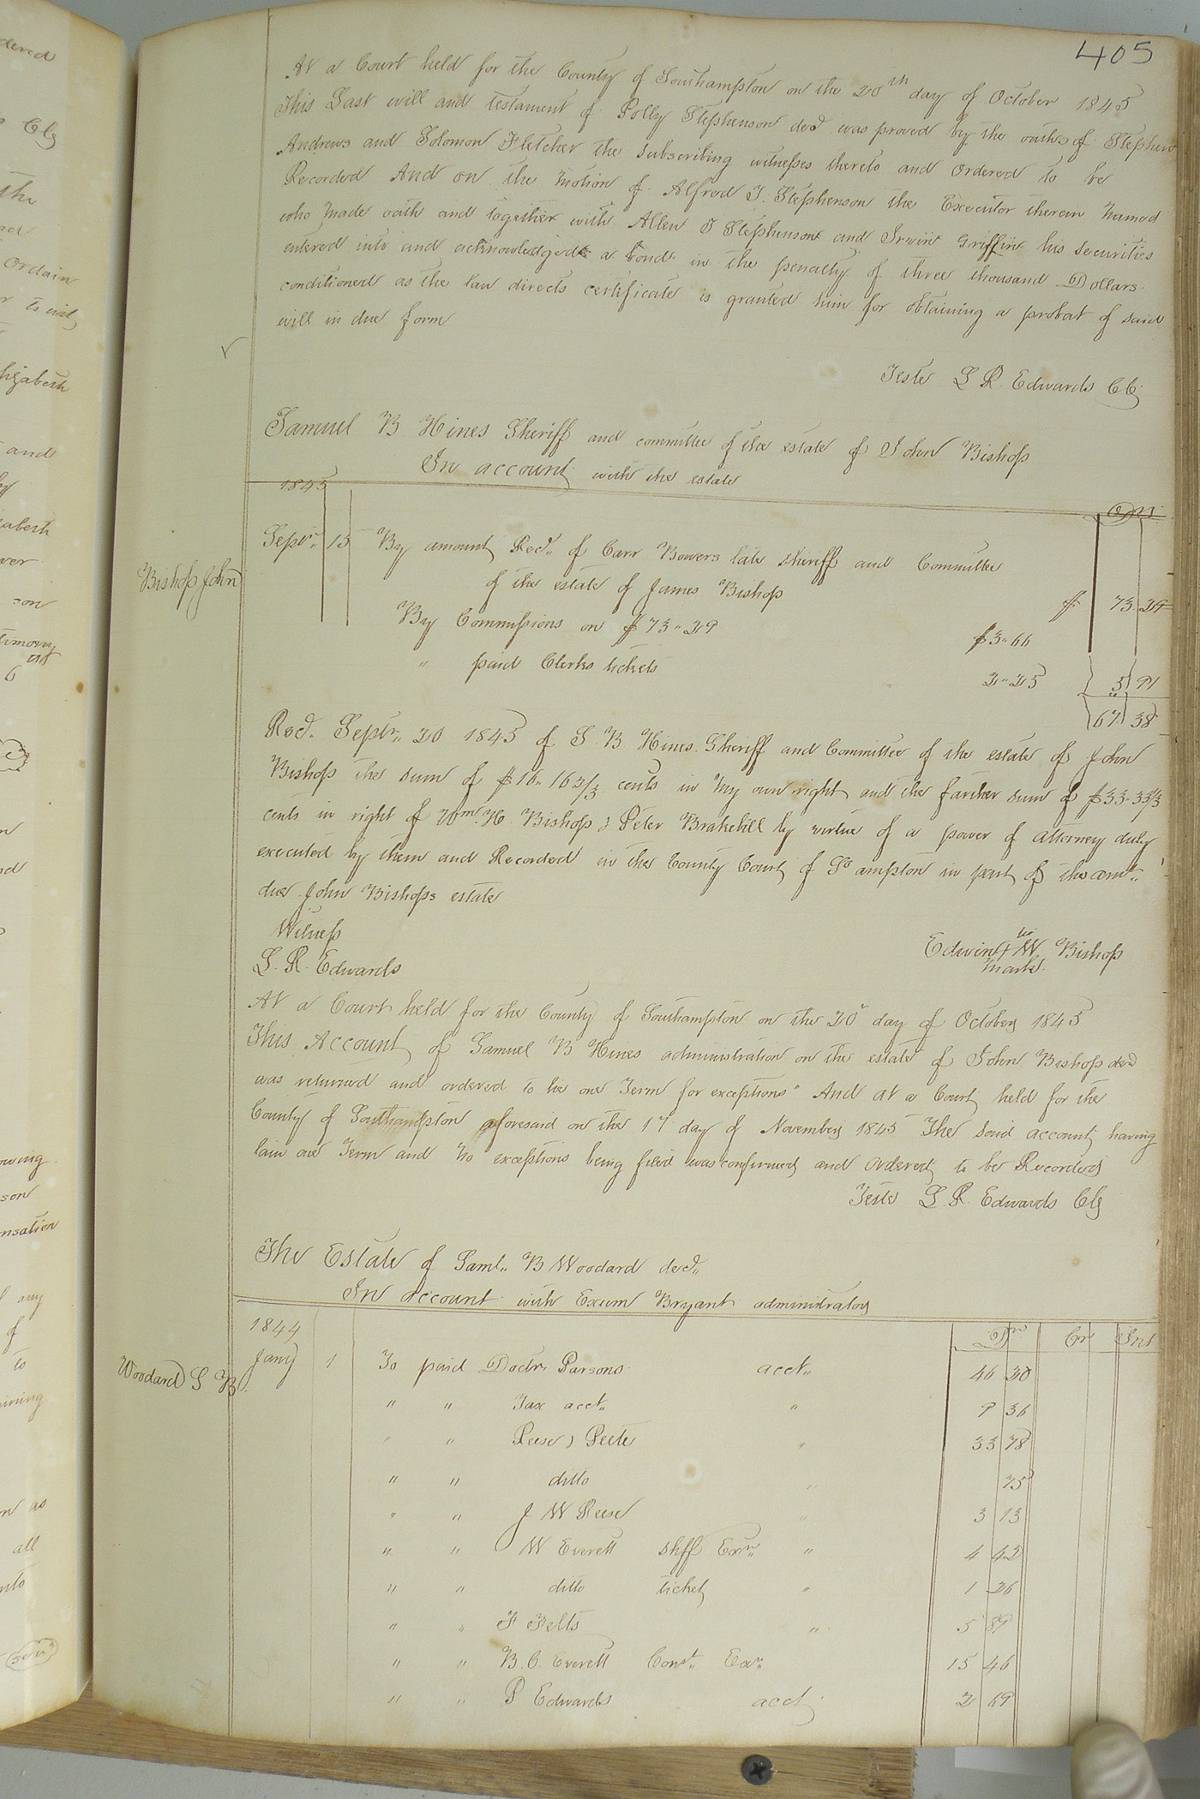 405
At a Court held for the County of Southampton on the 20th day of October 1845
This Last will and testament of Polly Stephenson decd was proved by the oaths of Stephen
Andrews and Solomon Fletcher the subscribing witnesses thereto and Ordered to be
Recorded And on the motion of Alfred J. Stephenson the Executor therein named
who made oath and together with Allen J Stephenson and Irwin Griffin his securities
entered into and acknowledged a bond in the penalty of three thousand Dollars
conditioned as the law directs certificate is granted him for obtaining a probat of said
will in due form
Teste L R Edwards Clk
Samuel B Hines Sheriff and committee of the estate of John Bishop
In account with the estate
1845
Bishop John
Septr. 15 By amount Recd. of Carr Bowers late sheriff and Committee
of the estate of James Bishop $ 73 29
By Commissions on $73 " 29 $3 " 66
" paid Clerks tickets 2 " 25 5 91
67 38
Recd. Septr. 20 1845 of S B Hines Sheriff and Committee of the estate of John
Bishop the sum of $16 " 16 2/3 cents in my own right and the farther sum of $33 " 33 1/3
cents in right of Wm. H. Bishop & Peter Brakehill by virtue of a power of attorney duly
executed by them and Recorded in the County Court of So ampton in part of the amt.
due John Bishops estate
Witness
L. R. Edwards
Edwin W Bishop
mark
At a Court held for the County of Southampton on the 20 day of October 1845
This Account of Samuel B Hines administration on the estate of John Bishop decd
was returned and ordered to lie one Term for exceptions " And at a Court held for the
County of Southampton aforesaid on the 17 day of November 1845 The said account having
lain one Term and no exceptions being filed was confirmed and ordered to be Recorded
Teste L R Edwards Clk
The Estate of Saml. B Woodard decd.
In account with Exum Bryant administrator
1844 Dr Cr Int
Woodard S B.
Jany 1 To paid Doctr. Parsons acct. 46 20
" " Tax acct. " 9 36
" " Reese & Peete " 33 78
" " ditto " 75
" " J W Reese " 3 13
" " W Everett shff Exn. " 4 42
" " ditto ticket " 1 26
" " F Felts " 5 89
" " B. C. Everett Const. Exn. 15 46
" " P Edwards acct. 2 69